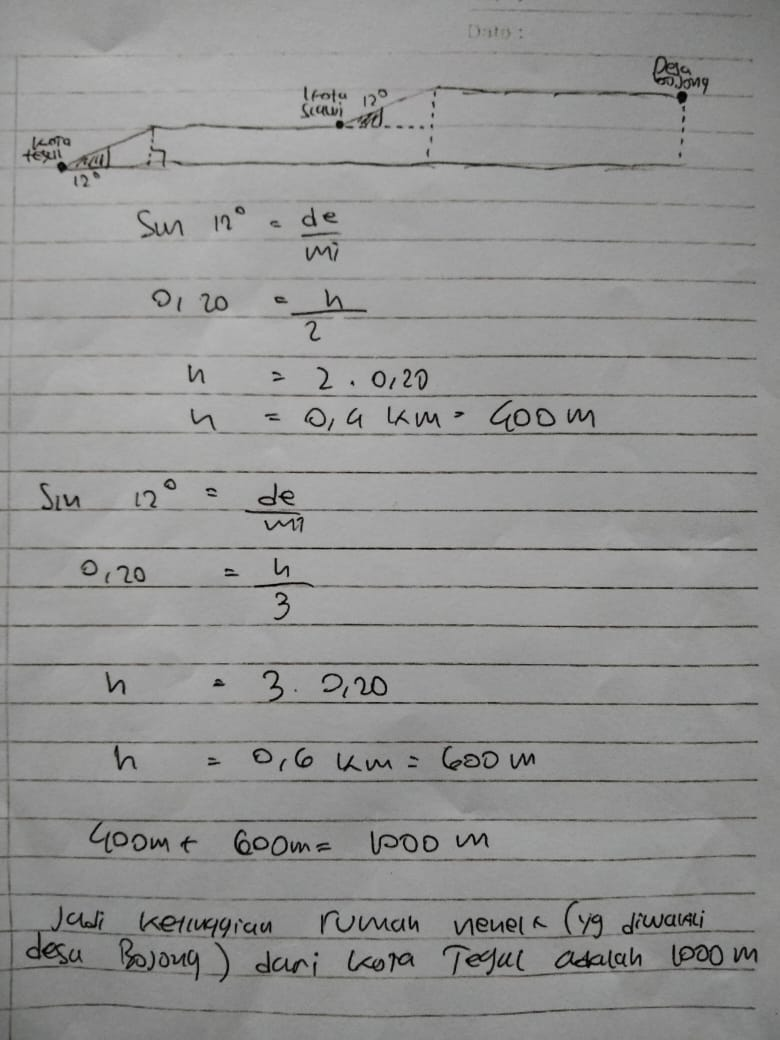 Date :
Desa
Bojong
Kota
Slawi
12°
Kota
tegal
12°
Sin 12° = de/mi
0,20 = h/2
h = 2 . 0,20
h = 0,4 km = 400 m
Sin 12° = de/mi
0,20 = h/3
h = 3 . 0,20
h = 0,6 km = 600 m
400m + 600m = 1000 m
Jadi ketinggian rumah nenek (yg diwakili
desa Bojong) dari kota Tegal adalah 1000 m